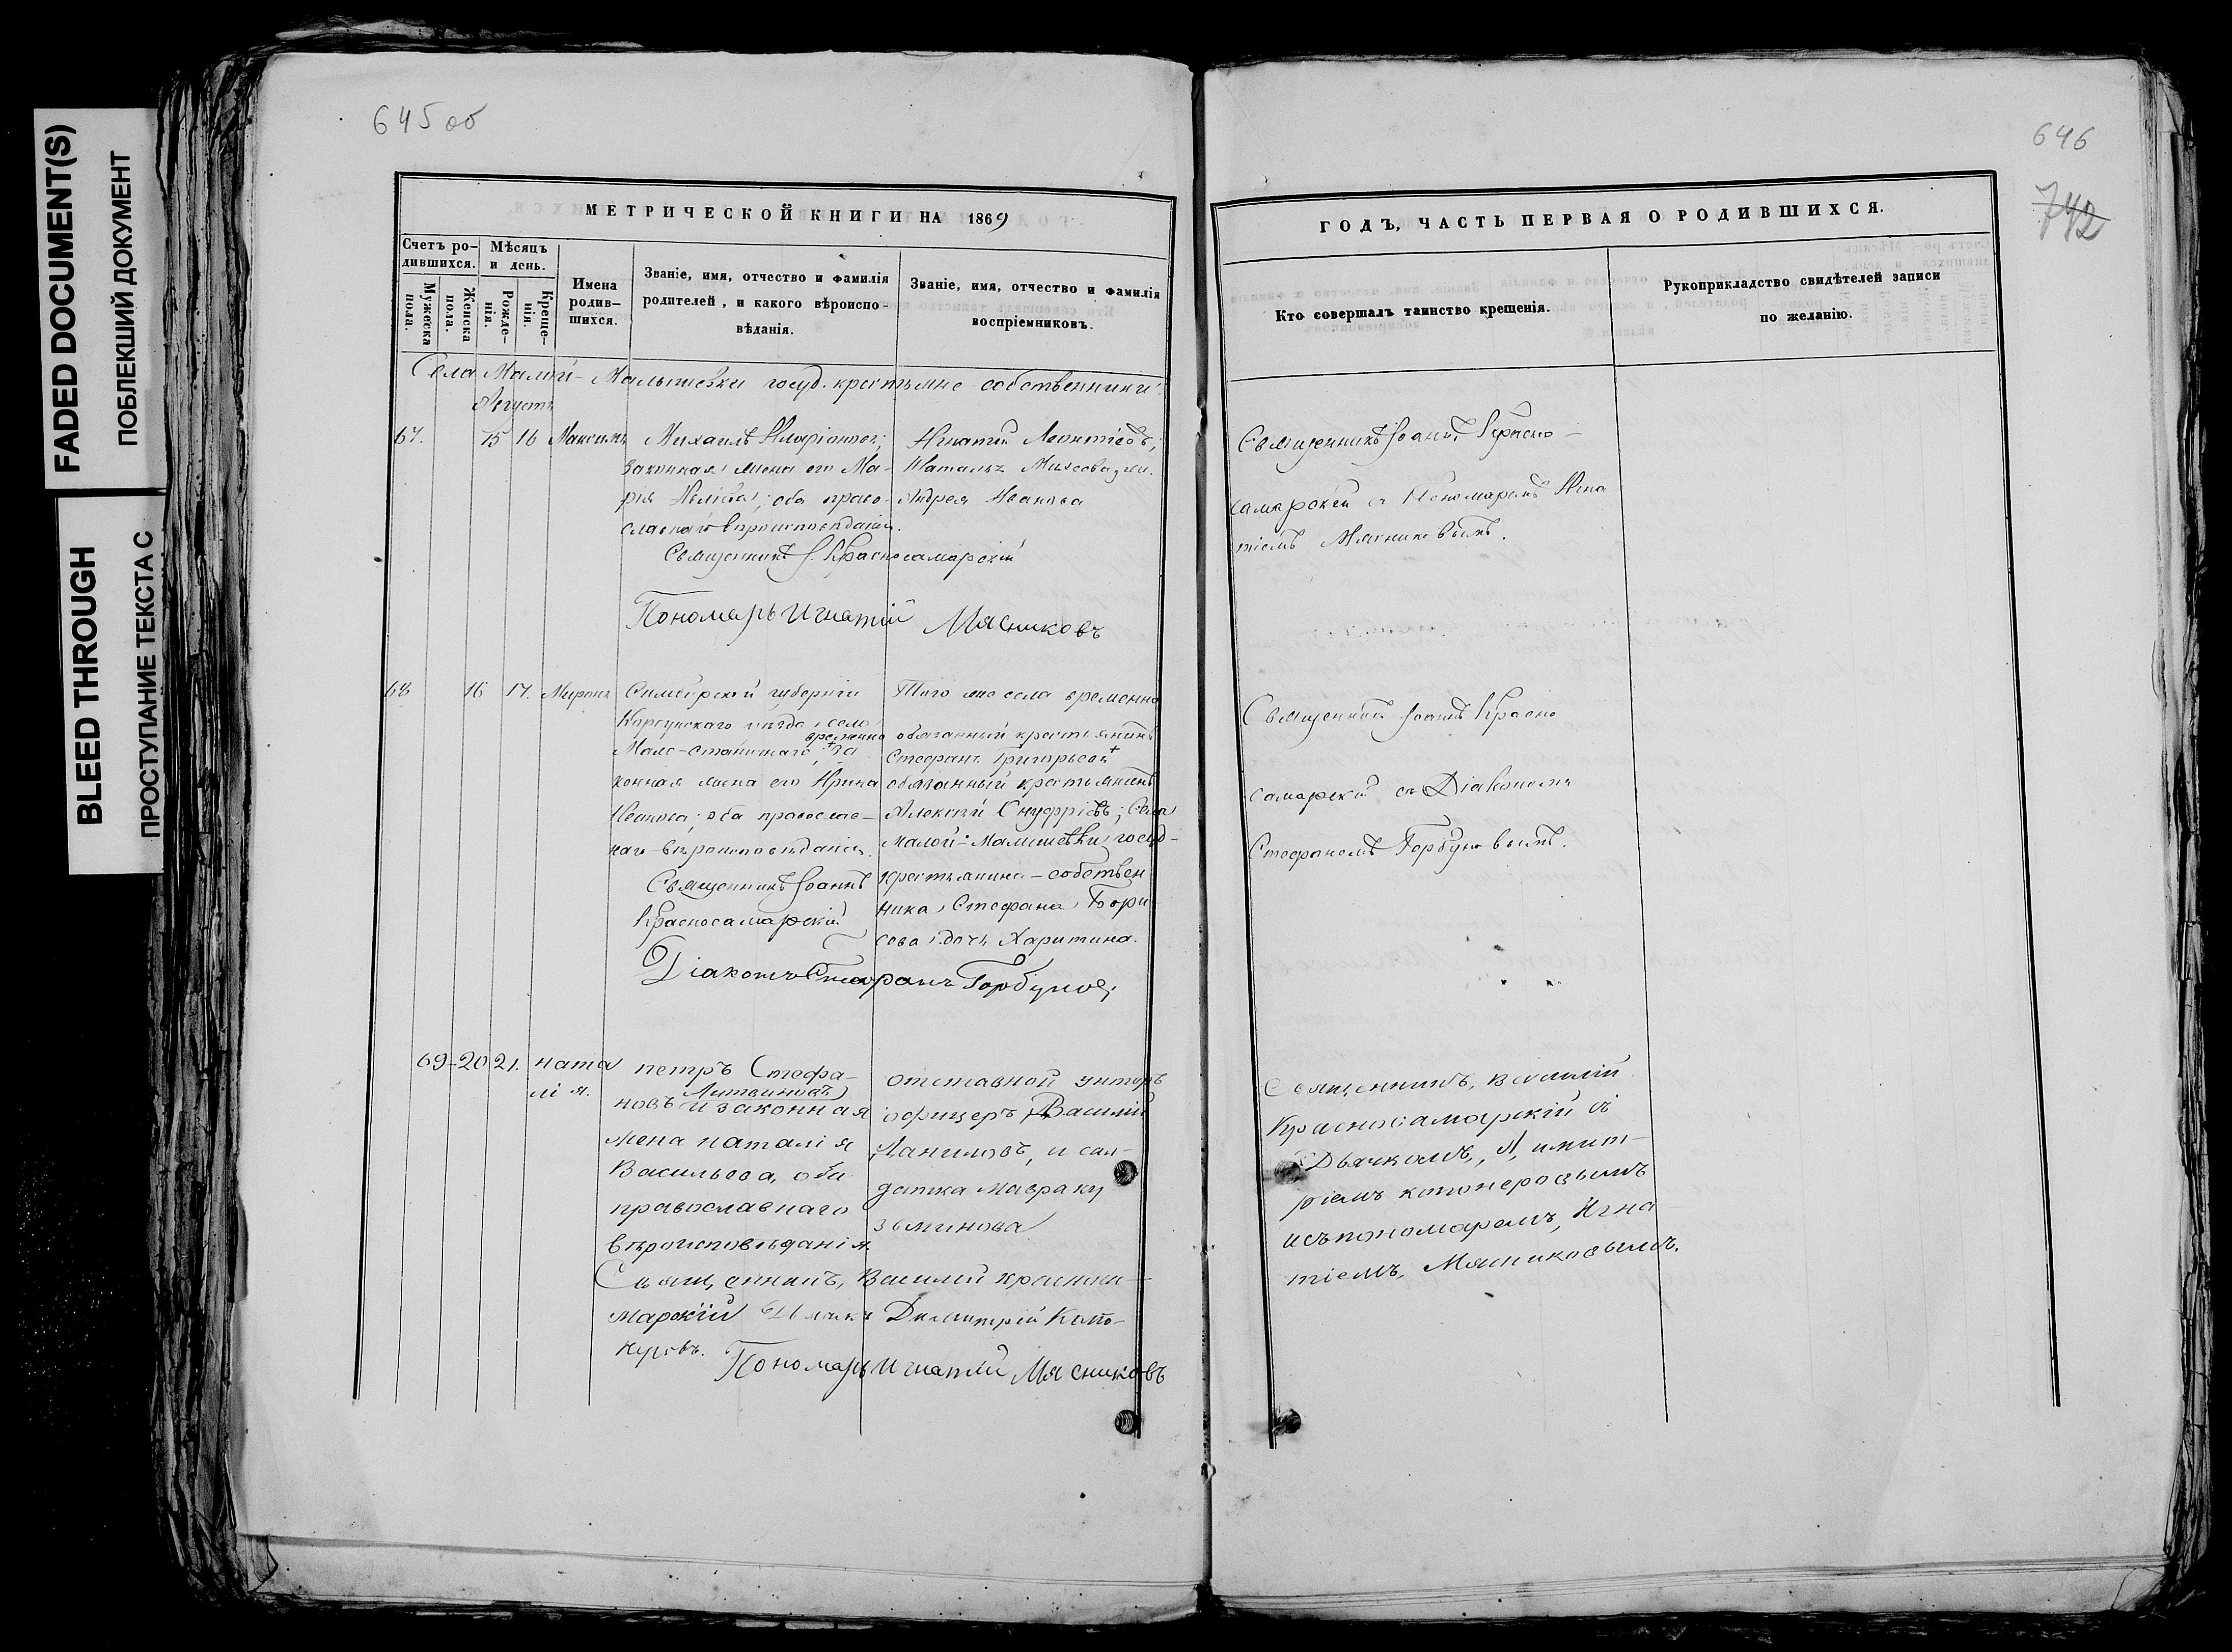 FADED DOCUMENT(S)
ПОБЛЕКШИЙ ДОКУМЕНТ
BLEED THROUGH
ПРОСТУПАНИЕ ТЕКСТА С
645 об
МЕТРИЧЕСКОЙ КНИГИ НА 1869
Счетъ ро-
дившихся.
Мужеска
пола.
Женска
пола.
Мѣсяцъ
и день.
Рожде-
нія.
Креще-
нія.
Имена
родив-
шихся.
Званіе, имя, отчество и фамилія
родителей, и какого вѣроиспо-
вѣданія.
Званіе, имя, отчество и фамилія
воспріемниковъ.
Села Малой-Малышевки госуд. крестьяне собственники
Августъ
67. 15 16 Максимъ
Михаилъ
законная жена его Ма-
рія оба право-
славнаго вѣроисповѣданія.
Священникъ І. Красносамарскій
Пономарь Игнатій Мясниковъ
Игнатій Леонтіевъ;
Наталья
Андрея Иванова
68 16 17. Миронъ
Симбирской губерніи
Корсунскаго уѣзда, села
временно
Мало-Станичнаго, за
конная жена его Ирина
Иванова; оба православ-
наго вѣроисповѣданія.
Священникъ Іоаннъ
Красносамарскій
Діаконъ Стефанъ Горбуновъ
Того же села временно
обязанный крестьянинъ
Стефанъ Григорьевъ
обязанный крестьянинъ
Алексѣй Онуфріевъ; Села
Малой-Малышевки госуд-
крестьянина-собствен
ника Стефана Бори
сова дочь Харитина.
69-20 21. ната
лія.
петръ Стефа-
Литвиновъ
новъ и законная
жена наталія
Васильева, оба
православнаго
вѣроисповѣданія.
Священникъ, Василій красноса-
марскій Дьячекъ Димитрій Капо-
неровъ.
Пономарь Игнатій Мясниковъ
отставной унтеръ
офицеръ Василій
Даниловъ, и сол-
датка Мавра ку
зьминова
646
742
ГОДЪ, ЧАСТЬ ПЕРВАЯ О РОДИВШИХСЯ.
Кто совершалъ таинство крещенія.
Рукоприкладство свидѣтелей записи
по желанію.
Священникъ Іоаннъ Красно-
самарскій съ Пономаремъ Игна
тіемъ Мясниковымъ.
Священникъ Іоаннъ Красно
самарскій съ Діакономъ
Стефаномъ Горбуновымъ.
Священникъ, василій
Красносамарскій съ
Дьячкомъ, Димит-
ріемъ капонеровымъ
и съ пономаремъ, Игна
тіемъ, Мясниковымъ.